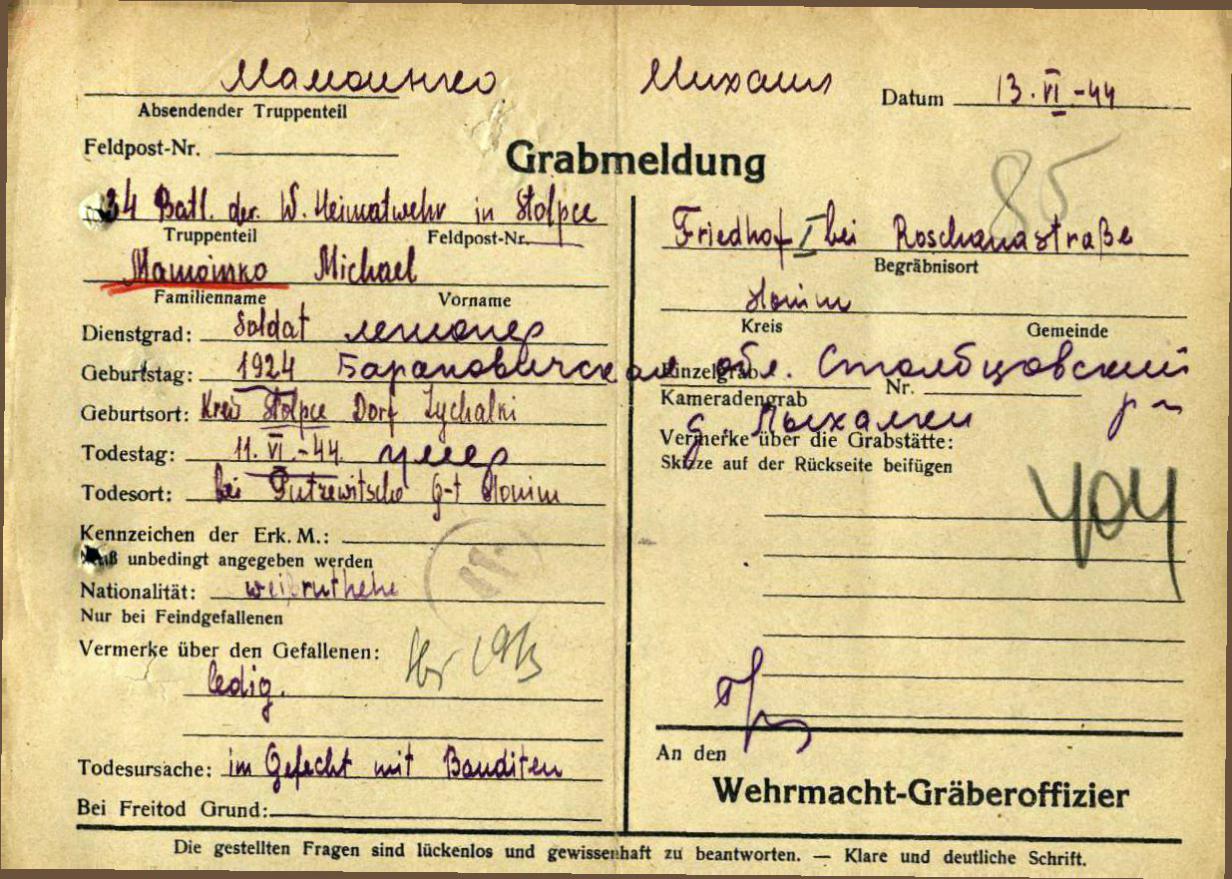 Мамоинко Михаил
Datum 13. VI -44
Absendender Truppenteil
Feldpost-Nr.
Grabmeldung
85
34 Batl. der. W. Heimatwehr in Stolpce
Truppenteil Feldpost-Nr.
Mamoinko Michael
Familienname Vorname
Dienstgrad: Soldat
Geburtstag: 1924 Барановичская обл. Столбцовский
р-н
Geburtsort: Kreis Stolpce Dorf Lychalki
д Лыхалки
Todestag: 11. VI.-44. умер
Todesort: bei G-t Slonim
Kennzeichen der Erk. M.:
Muß unbedingt angegeben werden
Nationalität: weißruthene
Nur bei Feindgefallenen
Vermerke über den Gefallenen:
ledig.
Todesursache: im Gefecht mit Banditen
Bei Freitod Grund:
Friedhof I bei Roschanastraße
Begräbnisort
Slonim
Kreis Gemeinde
Einzelgrab Nr.
Kameradengrab
Vermerke über die Grabstätte:
Skizze auf der Rückseite beifügen
404
An den
Wehrmacht-Gräberoffizier
Die gestellten Fragen sind lückenlos und gewissenhaft zu beantworten. — Klare und deutliche Schrift.